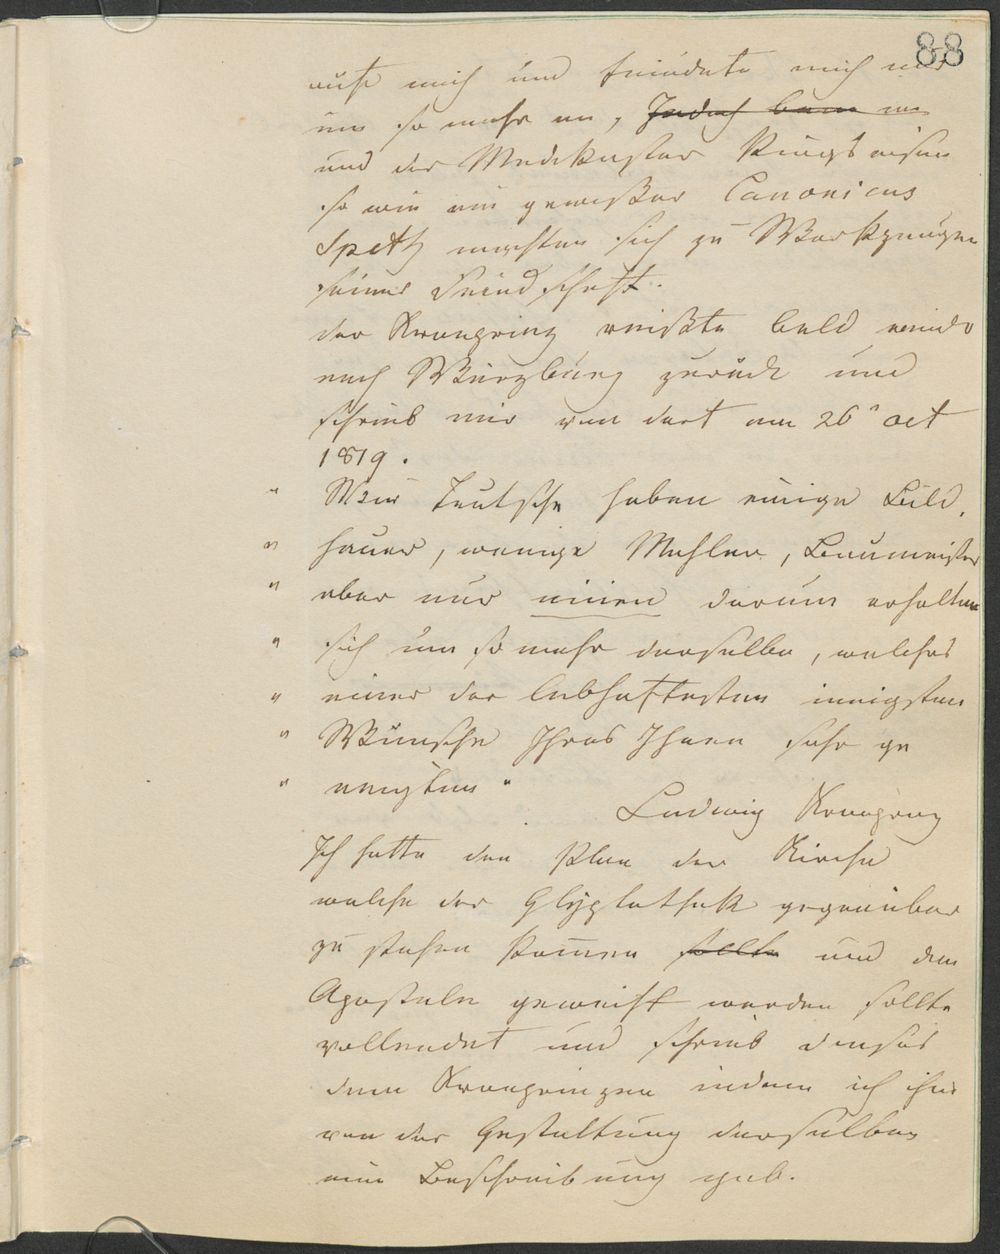 88
mich und feindete mich nur
um so mehr an, Jedoch kam nun
und der Medikaster Ringseisen
so wie ein gewisser Canonicus
Spett machten sich zu Werkzeugen
seiner Feindschaft.
der Kronprinz reißte bald wieder
nach Würzburg zurück und
schrieb mir von dort am 26n Oct
1819.
" Wir Teutsche haben einige Bild,
" hauer, wenige Mahler, Baumeister
" aber nur einen darum erhalten
" sich um so mehr derselbe, welches
" einer der lebhaftesten innigsten
" Wünsche Ihres Ihnen sehr ge
" neigten "
Ludwig Kronprinz
Ich hatte den Plan der Kirche
welche der Glÿptothek gegenüber
zu stehen kommen sollte und den
Aposteln geweiht werden sollte
vollendet und schrieb dieses
dem Kronprinzen indem ich ihm
von der Gestaltung derselben
eine Beschreibung gab.